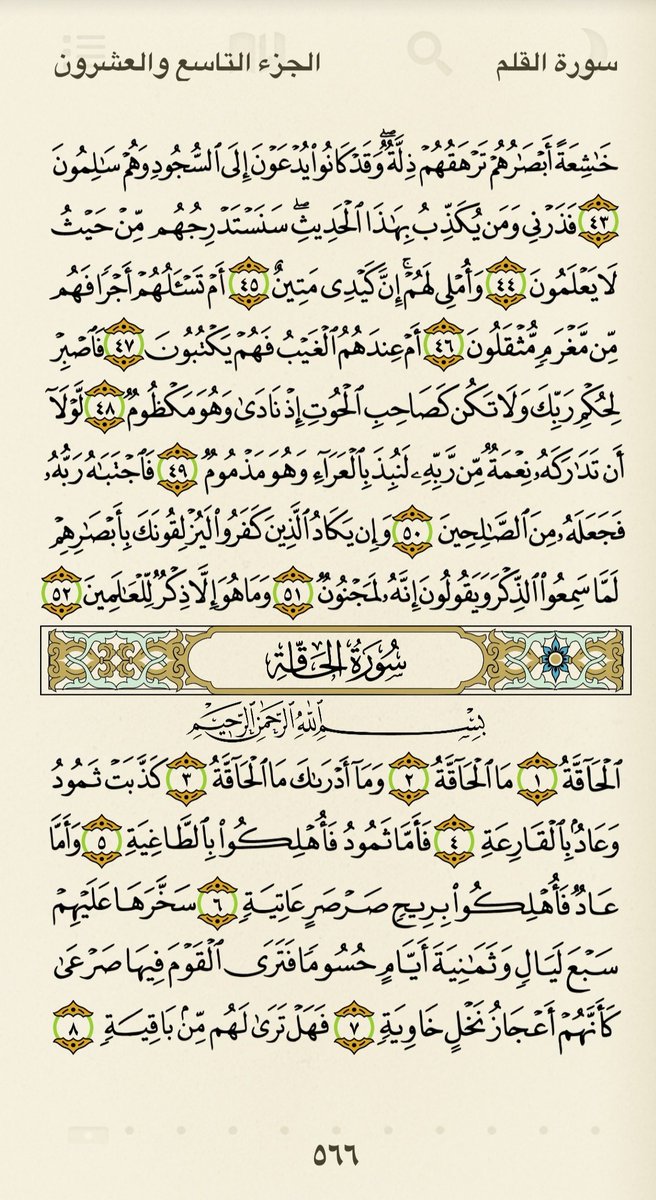 سورة القلم الجزء التاسع والعشرون
خَٰشِعَةً أَبۡصَٰرُهُمۡ تَرۡهَقُهُمۡ ذِلَّةٞۖ وَقَدۡ كَانُواْ يُدۡعَوۡنَ إِلَى ٱلسُّجُودِ وَهُمۡ سَٰلِمُونَ
٤٣ فَذَرۡنِي وَمَن يُكَذِّبُ بِهَٰذَا ٱلۡحَدِيثِۖ سَنَسۡتَدۡرِجُهُم مِّنۡ حَيۡثُ
لَا يَعۡلَمُونَ ٤٤ وَأُمۡلِي لَهُمۡۚ إِنَّ كَيۡدِي مَتِينٌ ٤٥ أَمۡ تَسۡـَٔلُهُمۡ أَجۡرٗا فَهُم
مِّن مَّغۡرَمٖ مُّثۡقَلُونَ ٤٦ أَمۡ عِندَهُمُ ٱلۡغَيۡبُ فَهُمۡ يَكۡتُبُونَ ٤٧ فَٱصۡبِرۡ
لِحُكۡمِ رَبِّكَ وَلَا تَكُن كَصَاحِبِ ٱلۡحُوتِ إِذۡ نَادَىٰ وَهُوَ مَكۡظُومٞ ٤٨ لَّوۡلَآ
أَن تَدَٰرَكَهُۥ نِعۡمَةٞ مِّن رَّبِّهِۦ لَنُبِذَ بِٱلۡعَرَآءِ وَهُوَ مَذۡمُومٞ ٤٩ فَٱجۡتَبَٰهُ رَبُّهُۥ
فَجَعَلَهُۥ مِنَ ٱلصَّٰلِحِينَ ٥٠ وَإِن يَكَادُ ٱلَّذِينَ كَفَرُواْ لَيُزۡلِقُونَكَ بِأَبۡصَٰرِهِمۡ
لَمَّا سَمِعُواْ ٱلذِّكۡرَ وَيَقُولُونَ إِنَّهُۥ لَمَجۡنُونٞ ٥١ وَمَا هُوَ إِلَّا ذِكۡرٞ لِّلۡعَٰلَمِينَ ٥٢
سُورَةُ الحَاقَّةِ
بِسۡمِ ٱللَّهِ ٱلرَّحۡمَٰنِ ٱلرَّحِيمِ
ٱلۡحَآقَّةُ ١ مَا ٱلۡحَآقَّةُ ٢ وَمَآ أَدۡرَىٰكَ مَا ٱلۡحَآقَّةُ ٣ كَذَّبَتۡ ثَمُودُ
وَعَادُۢ بِٱلۡقَارِعَةِ ٤ فَأَمَّا ثَمُودُ فَأُهۡلِكُواْ بِٱلطَّاغِيَةِ ٥ وَأَمَّا
عَادٞ فَأُهۡلِكُواْ بِرِيحٖ صَرۡصَرٍ عَاتِيَةٖ ٦ سَخَّرَهَا عَلَيۡهِمۡ
سَبۡعَ لَيَالٖ وَثَمَٰنِيَةَ أَيَّامٍ حُسُومٗا فَتَرَى ٱلۡقَوۡمَ فِيهَا صَرۡعَىٰ
كَأَنَّهُمۡ أَعۡجَازُ نَخۡلٍ خَاوِيَةٖ ٧ فَهَلۡ تَرَىٰ لَهُم مِّنۢ بَاقِيَةٖ ٨
٥٦٦